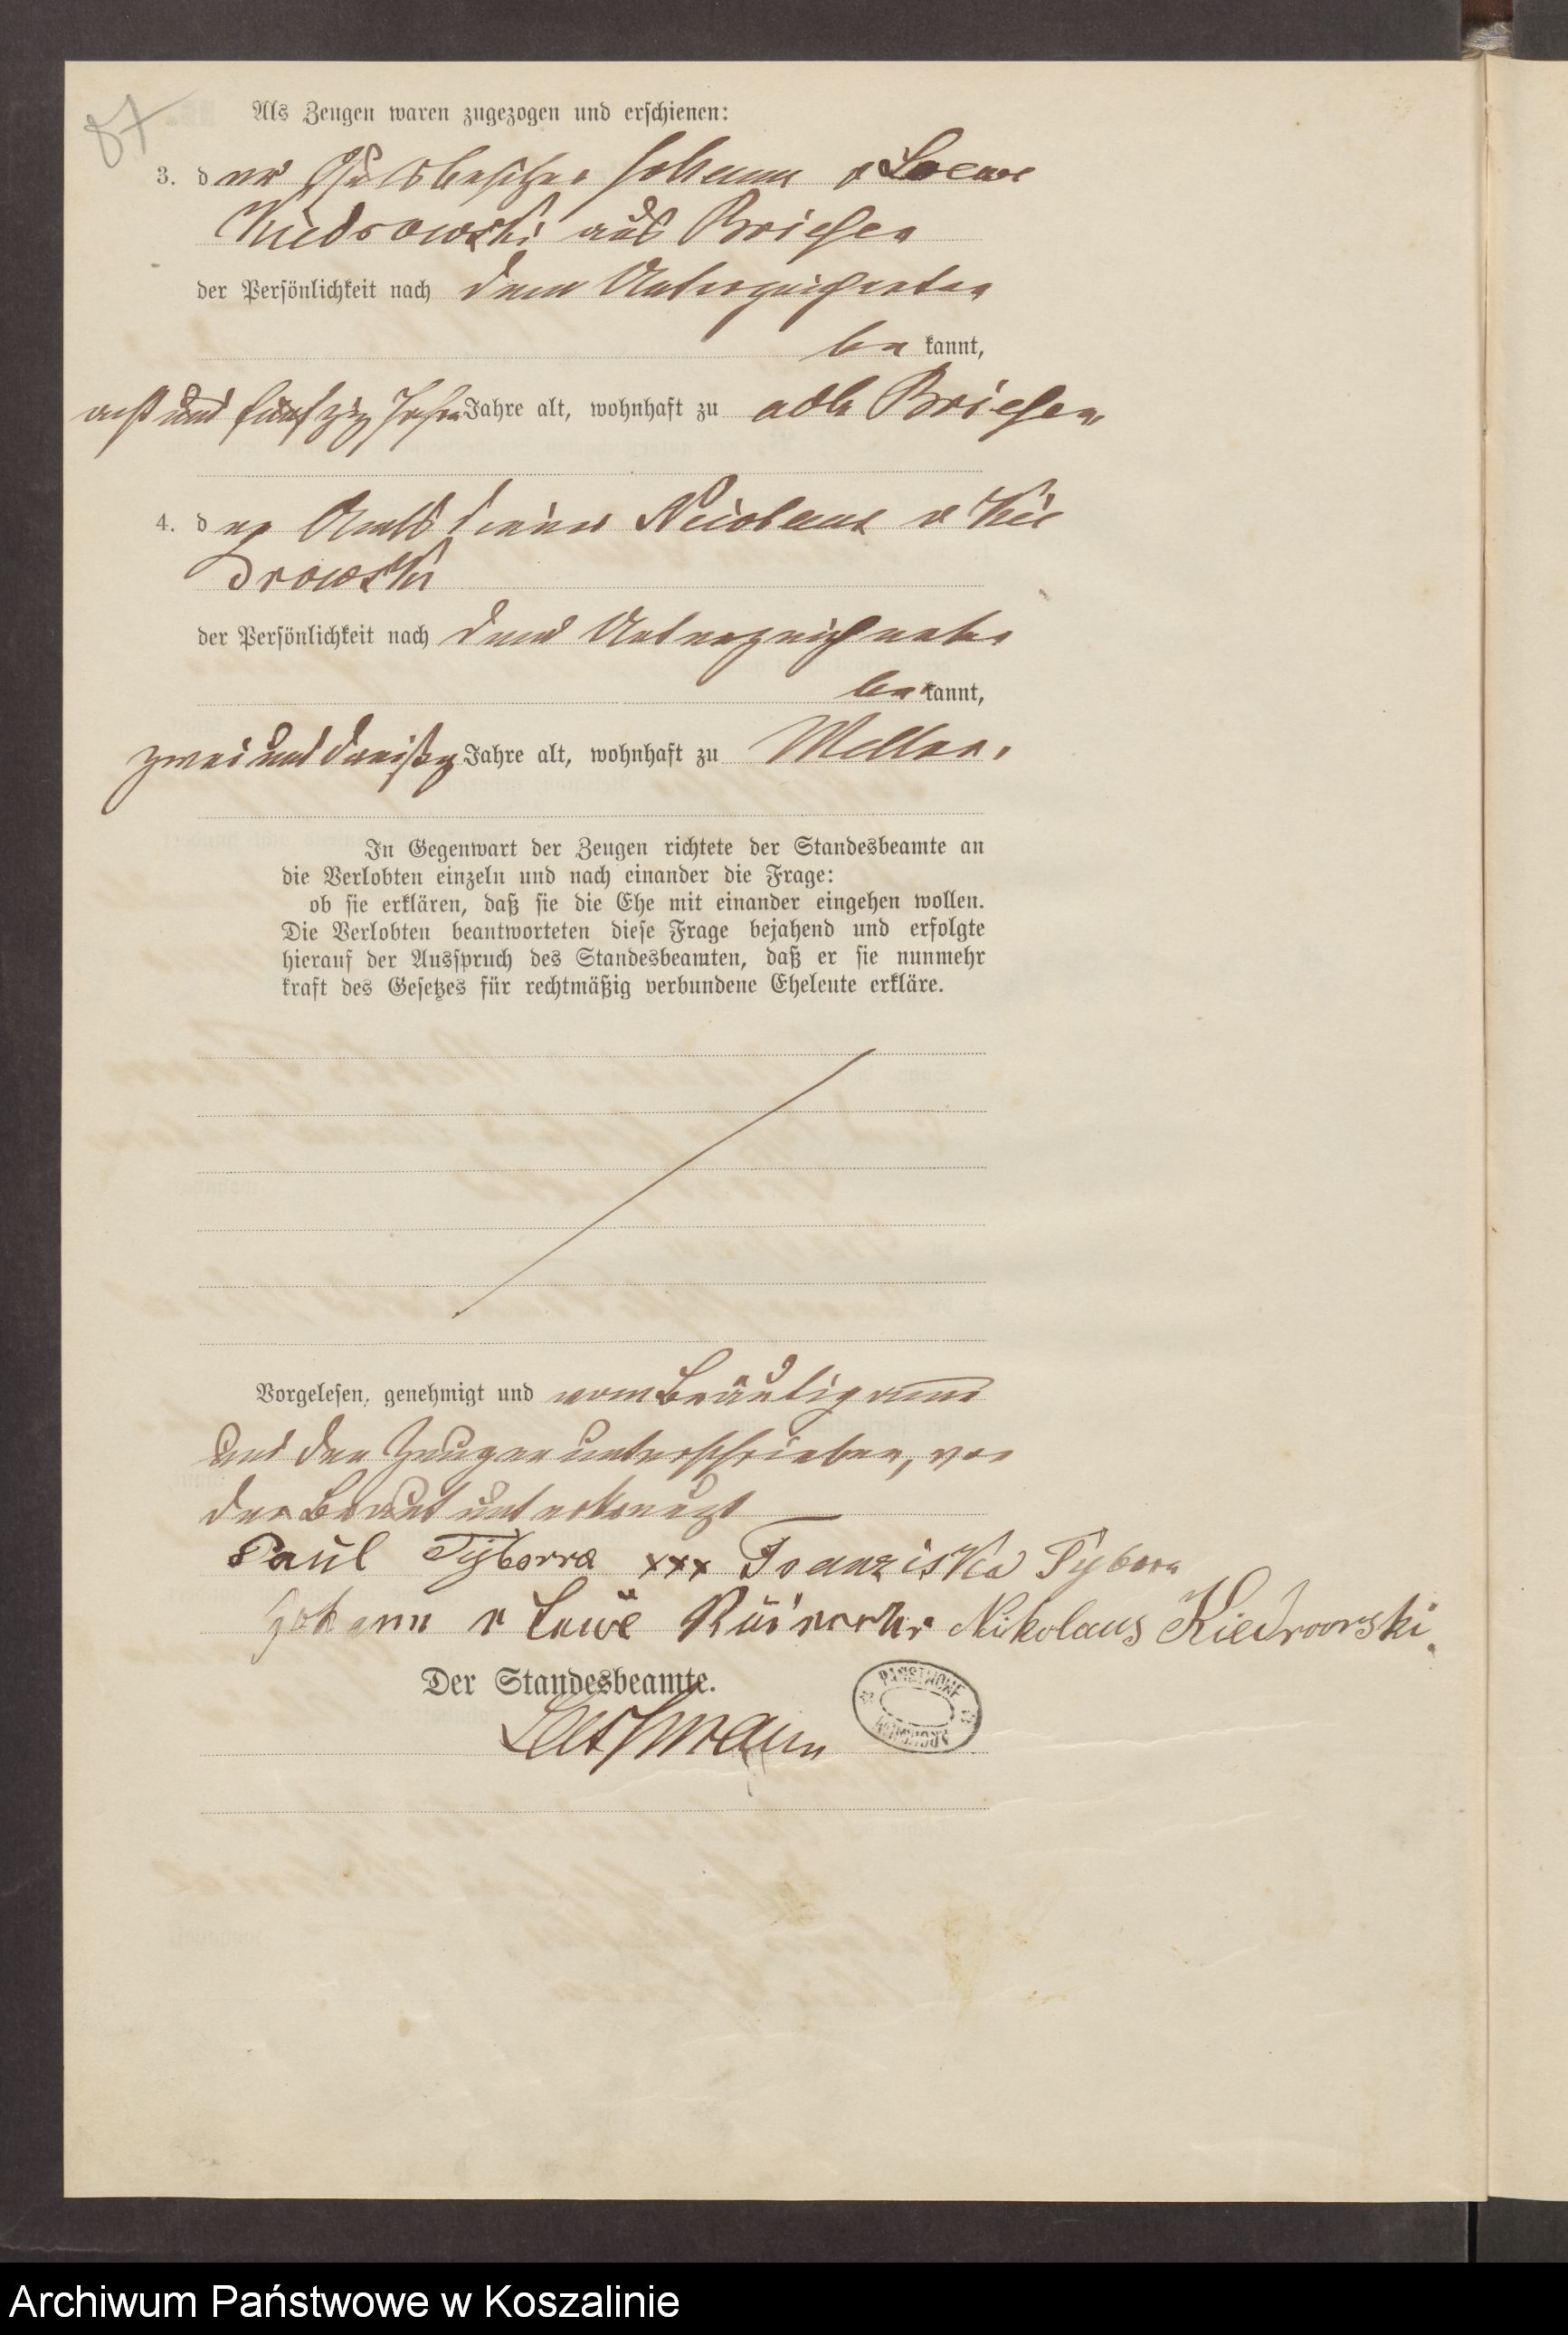 87
Als Zeugen waren zugezogen und erschienen:
3. der Gutsbesitzer Johann v Loewe
Kiedrowski aus Briesen
der Persönlichkeit nach dem Unterzeichneten
be kannt,
acht und fünfzig Jahre Jahre alt, wohnhaft zu adl. Briesen
4. der Amtsdiener Nicolaus v Kie
drowski
der Persönlichkeit nach dem Unterzeichneten
be kannt,
zwei und dreißig Jahre alt, wohnhaft zu
In Gegenwart der Zeugen richtete der Standesbeamte an
die Verlobten einzeln und nach einander die Frage:
ob sie erklären, daß sie die Ehe mit einander eingehen wollen.
Die Verlobten beantworteten diese Frage bejahend und erfolgte
hierauf der Ausspruch des Standesbeamten, daß er sie nunmehr
kraft des Gesetzes für rechtmäßig verbundene Eheleute erkläre.
Vorgelesen, genehmigt und vom Bräutigam
und den Zeugen unterschrieben, von
der Braut unterkreuzt
Paul Tyborra xxx Franziska Tybora
Johann v Lewe Nikolaus Kiedrowski.
Der Standesbeamte.
PAŃSTWOWE
ARCHIWUM
Archiwum Państwowe w Koszalinie